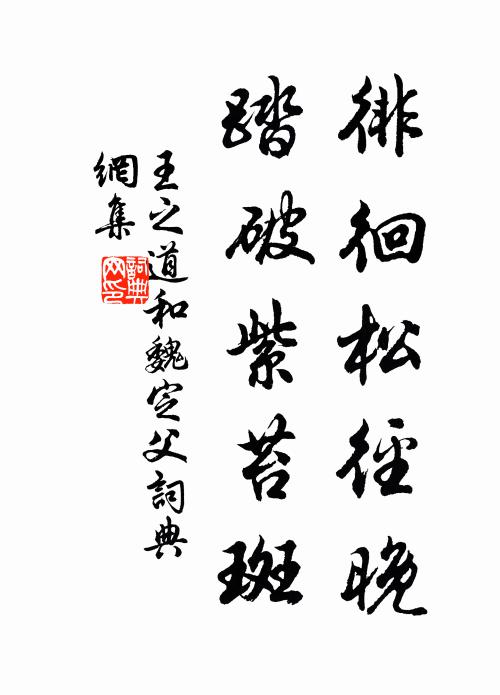 徘徊松徑晚
踏破紫苔斑
王之道和魏定父詞典
網集
詞典
网印